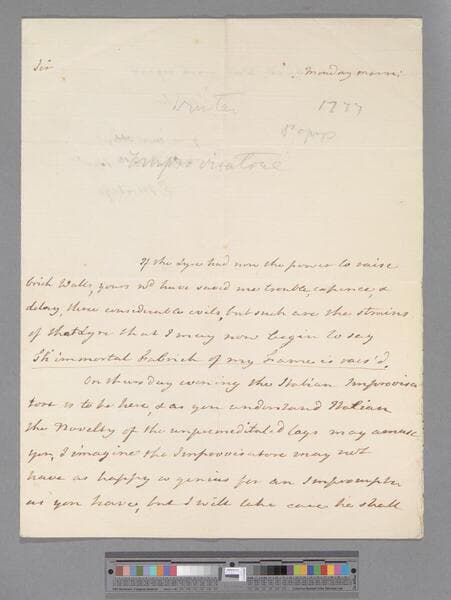 Sir
Monday morn:
1777
Improvisatore
If the Lyre had now the power to raise
brick Walls, yours wd have saved me trouble, expence, &
delay, three considerable evils, but such are the strains
of that Lyre that I may now begin to say
Th' immortal Fabrick of my Fame is rais'd.
On thursday evening the Italian Improvisa
tore is to be here, & as you understand Italian
the Novelty of the unpremeditated lays may amuse
you, I imagine the Improvisatore may not
have as happy a genius for an Impromptu
as you have, but I will take care he shall